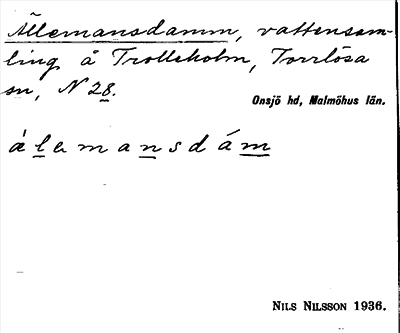 Ällemansdamm, vattensam-
ling å Trolleholm, Torrlösa
sn, N 28.
Onsjö hd, Malmöhus län.
àlemansdám
NILS NILSSON 1936.